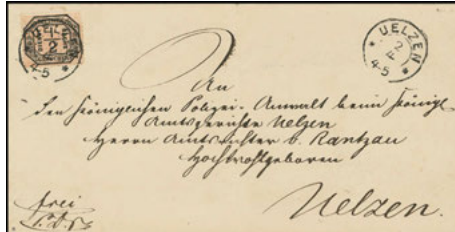 UELZEN
2
4-5
1/2
UELZEN
2
4-5
An
den Königlichen Polizei-Anwalt beim Königl.
Amtsgerichte Uelzen
Herrn Amtsrichter v. Rantzau
Hochwohlgeboren
Uelzen.
frei